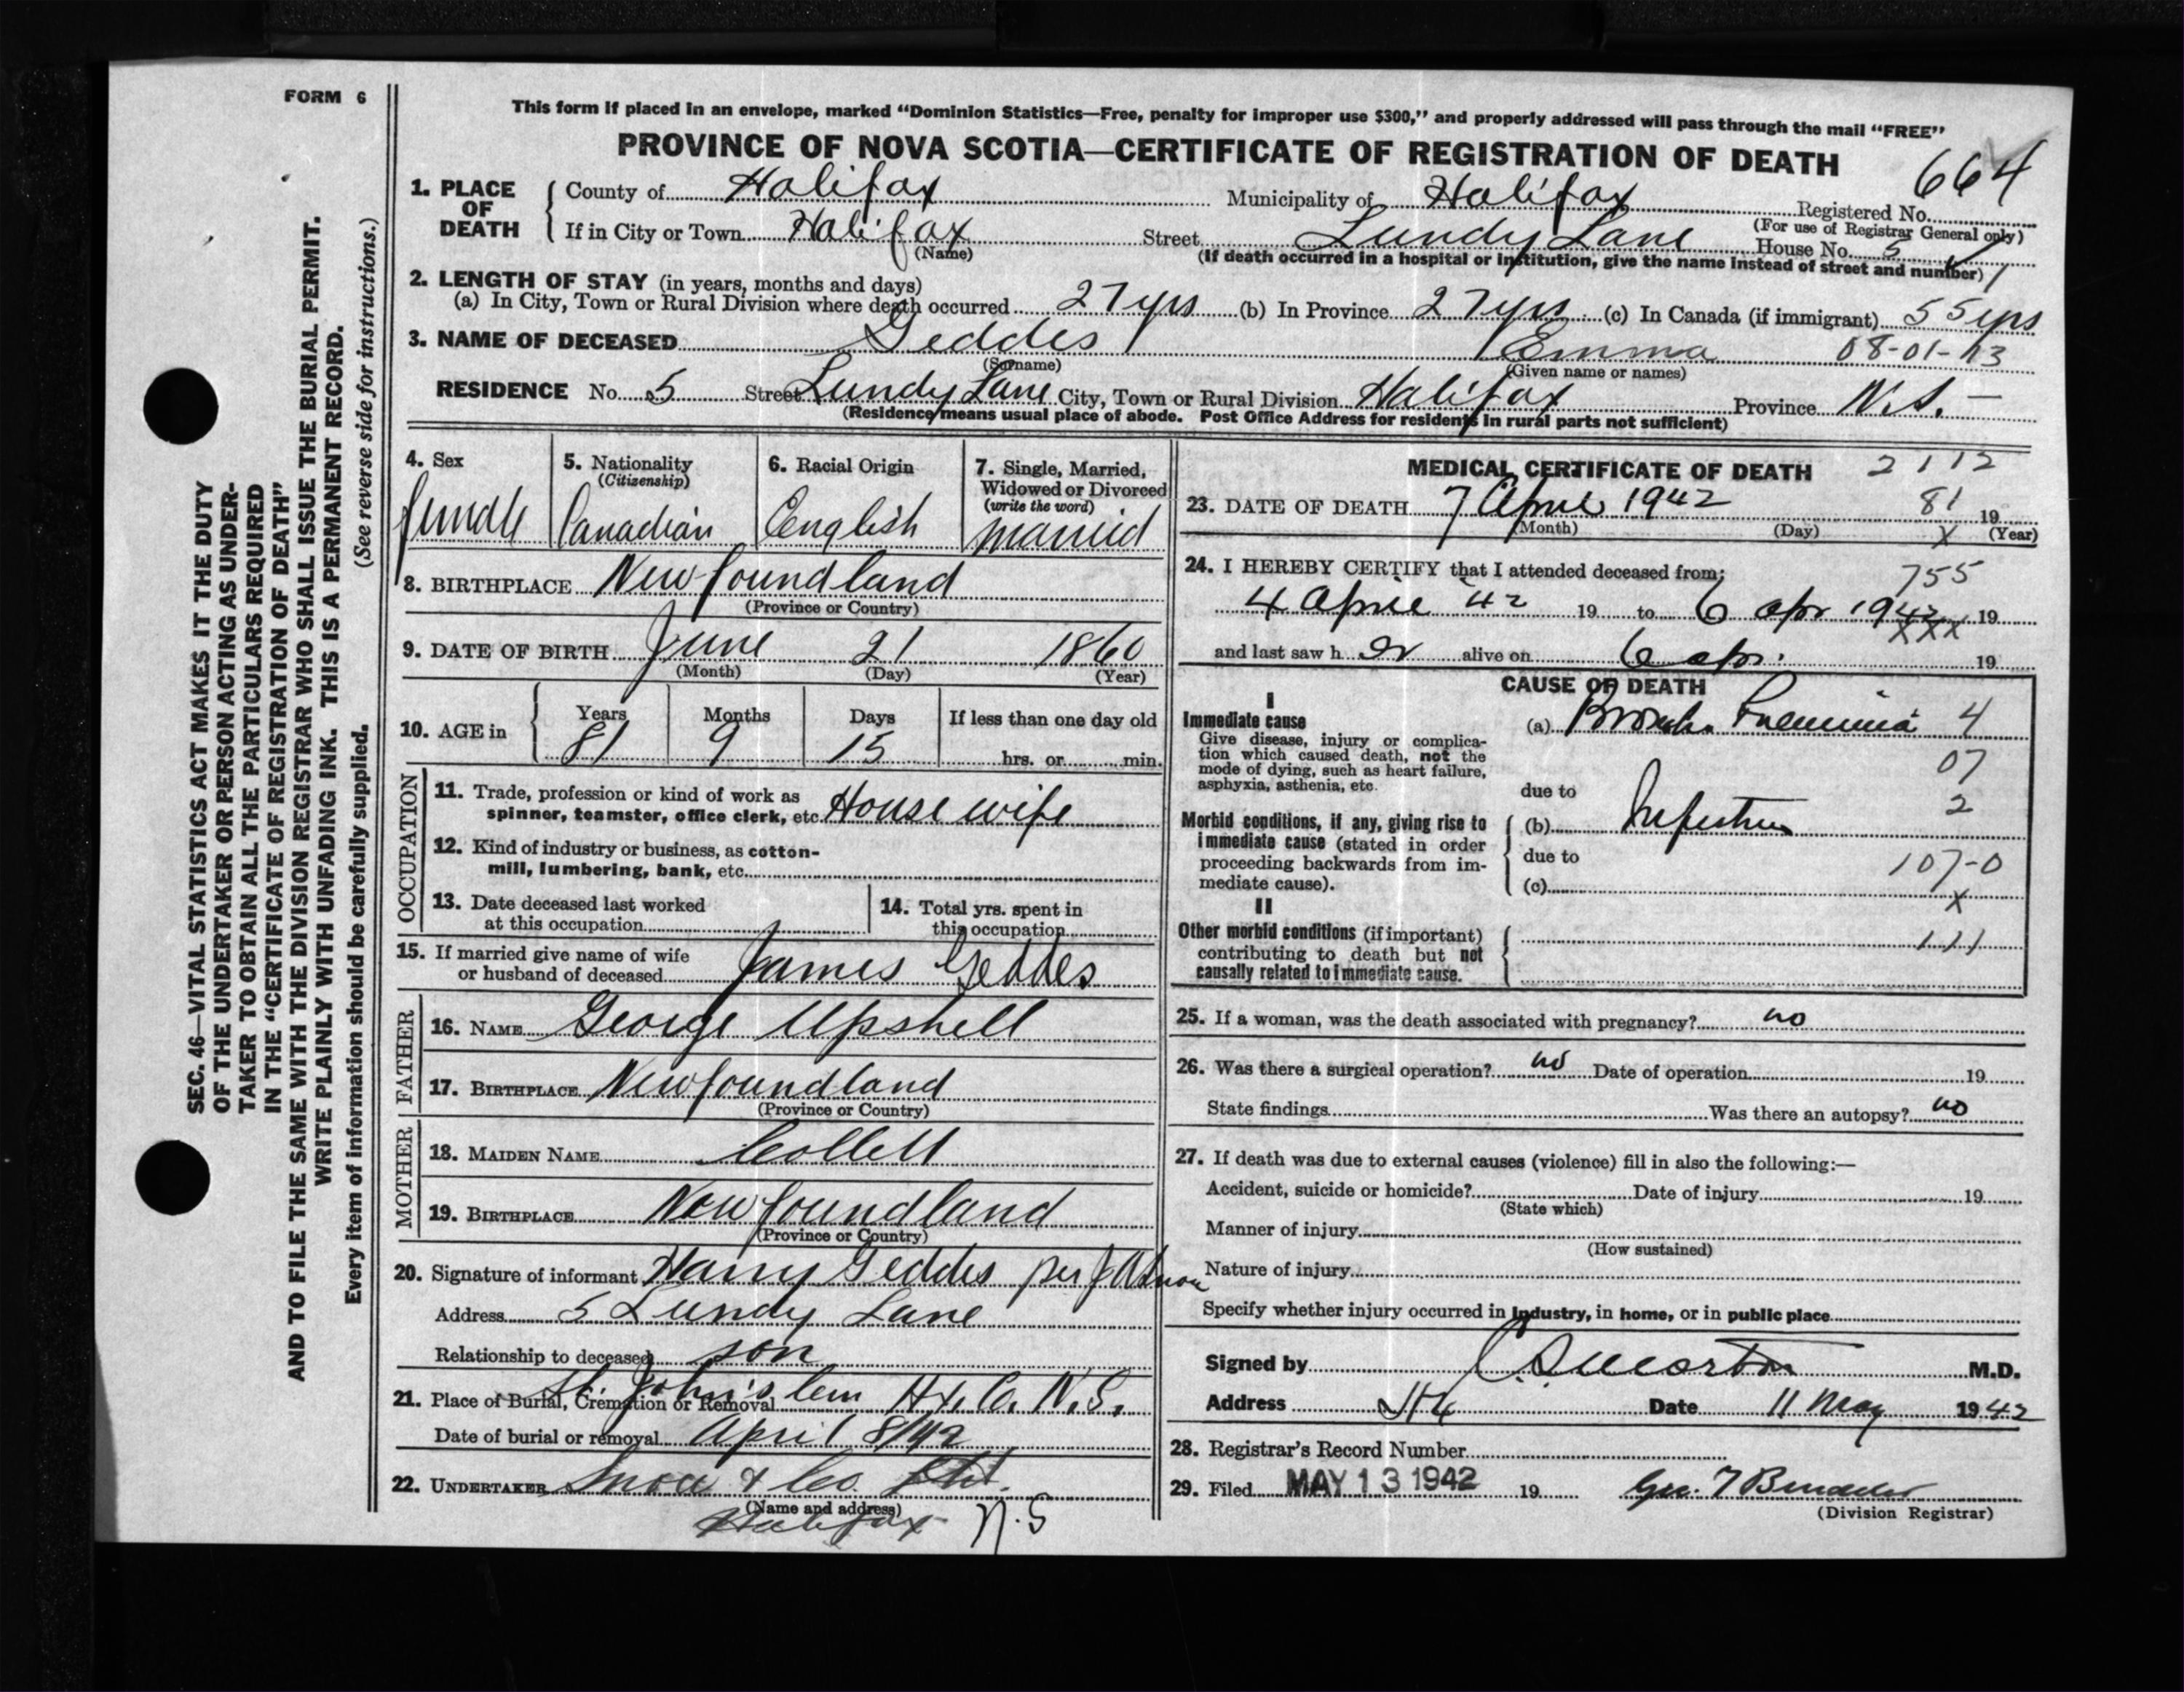 FORM 6
This form if placed in an envelope, marked “Dominion Statistics—Free, penalty for improper use $300,” and properly addressed will pass through the mail “FREE”
PROVINCE OF NOVA SCOTIA—CERTIFICATE OF REGISTRATION OF DEATH
664
1. PLACE OF DEATH
County of Halifax Municipality of Halifax Registered No.
(For use of Registrar General only)
If in City or Town Halifax Street Lundy Lane House No. 5
(Name) (If death occurred in a hospital or institution, give the name instead of street and number)
2. LENGTH OF STAY (in years, months and days)
(a) In City, Town or Rural Division where death occurred 27 yrs (b) In Province 27 yrs (c) In Canada (if immigrant) 55 yrs
3. NAME OF DECEASED Geddes Emma 08-01-13
(Surname) (Given name or names)
RESIDENCE No. 5 Street Lundy Lane City, Town or Rural Division Halifax Province N.S. —
(Residence means usual place of abode. Post Office Address for residents in rural parts not sufficient)
4. Sex
female
5. Nationality
(Citizenship)
Canadian
6. Racial Origin
English
7. Single, Married,
Widowed or Divorced
(write the word)
married
8. BIRTHPLACE Newfoundland
(Province or Country)
9. DATE OF BIRTH June 21 1860
(Month) (Day) (Year)
10. AGE in
Years Months Days If less than one day old
81 9 15 hrs. or min.
OCCUPATION
11. Trade, profession or kind of work as
spinner, teamster, office clerk, etc. House wife
12. Kind of industry or business, as cotton-
mill, lumbering, bank, etc.
13. Date deceased last worked
at this occupation
14. Total yrs. spent in
this occupation
15. If married give name of wife
or husband of deceased James Geddes
FATHER
16. NAME George Upshell
17. BIRTHPLACE Newfoundland
(Province or Country)
MOTHER
18. MAIDEN NAME Collett
19. BIRTHPLACE Newfoundland
(Province or Country)
20. Signature of informant Harry Geddes per
Address 5 Lundy Lane
Relationship to deceased son
21. Place of Burial, Cremation or Removal St. John's Cem Hx. Co. N.S.
Date of burial or removal April 8/42
22. UNDERTAKER Snow & Co. Ltd.
(Name and address)
Halifax N.S
MEDICAL CERTIFICATE OF DEATH 2112
23. DATE OF DEATH 7 April 1942 81 19
(Month) (Day) X (Year)
24. I HEREBY CERTIFY that I attended deceased from: 755
4 April 42 19 to 6 Apr 1942 19
XXX
and last saw h er alive on 6 Apr. 19
CAUSE OF DEATH
I
Immediate cause
Give disease, injury or complica-
tion which caused death, not the
mode of dying, such as heart failure,
asphyxia, asthenia, etc.
(a) Broncho Pneumonia 4
07
due to
2
Morbid conditions, if any, giving rise to
immediate cause (stated in order
proceeding backwards from im-
mediate cause).
(b)
due to 107-0
(c)
X
II
Other morbid conditions (if important)
contributing to death but not
causally related to immediate cause.
111
25. If a woman, was the death associated with pregnancy? no
26. Was there a surgical operation? no Date of operation 19
State findings Was there an autopsy? no
27. If death was due to external causes (violence) fill in also the following:—
Accident, suicide or homicide? Date of injury 19
(State which)
Manner of injury
(How sustained)
Nature of injury
Specify whether injury occurred in industry, in home, or in public place
Signed by Morton M.D.
Address Date 11 May 1942
28. Registrar's Record Number
29. Filed MAY 13 1942 19
(Division Registrar)
SEC. 46—VITAL STATISTICS ACT MAKES IT THE DUTY
OF THE UNDERTAKER OR PERSON ACTING AS UNDER-
TAKER TO OBTAIN ALL THE PARTICULARS REQUIRED
IN THE “CERTIFICATE OF REGISTRATION OF DEATH”
AND TO FILE THE SAME WITH THE DIVISION REGISTRAR WHO SHALL ISSUE THE BURIAL PERMIT.
WRITE PLAINLY WITH UNFADING INK. THIS IS A PERMANENT RECORD.
Every item of information should be carefully supplied. (See reverse side for instructions.)